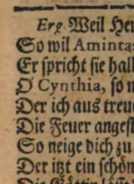 Erg. Weil
So wil Amintas
Er spricht sie
O Cynthia, so
Der ich aus treu
Die Feuer angest
So neige dich zu
Der itzt ein schön